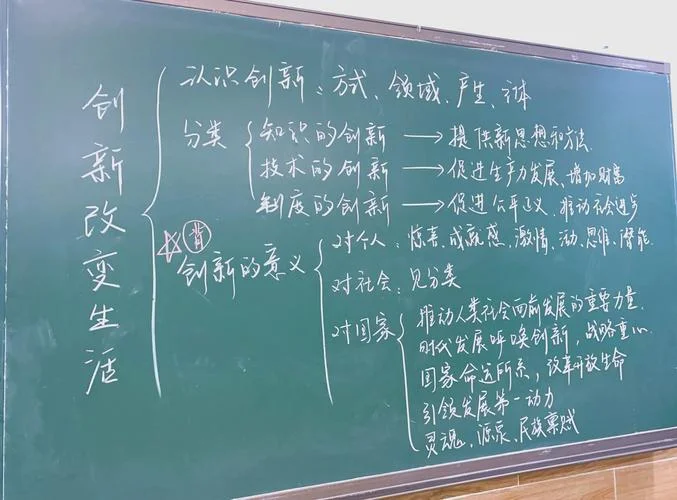 创新改变生活
认识创新：方式、领域、产生、主体
分类
知识的创新 → 提供新思想和方法.
技术的创新 → 促进生产力发展、增加财富
制度的创新 → 促进公平正义、推动社会进步
背
创新的意义
对个人：惊喜、成就感、激情、活动、思维、潜能.
对社会：见分类
对国家
推动人类社会向前发展的重要力量.
时代发展呼唤创新，战略重心
国家命运所系，改革开放生命
引领发展第一动力
灵魂、源泉、民族禀赋